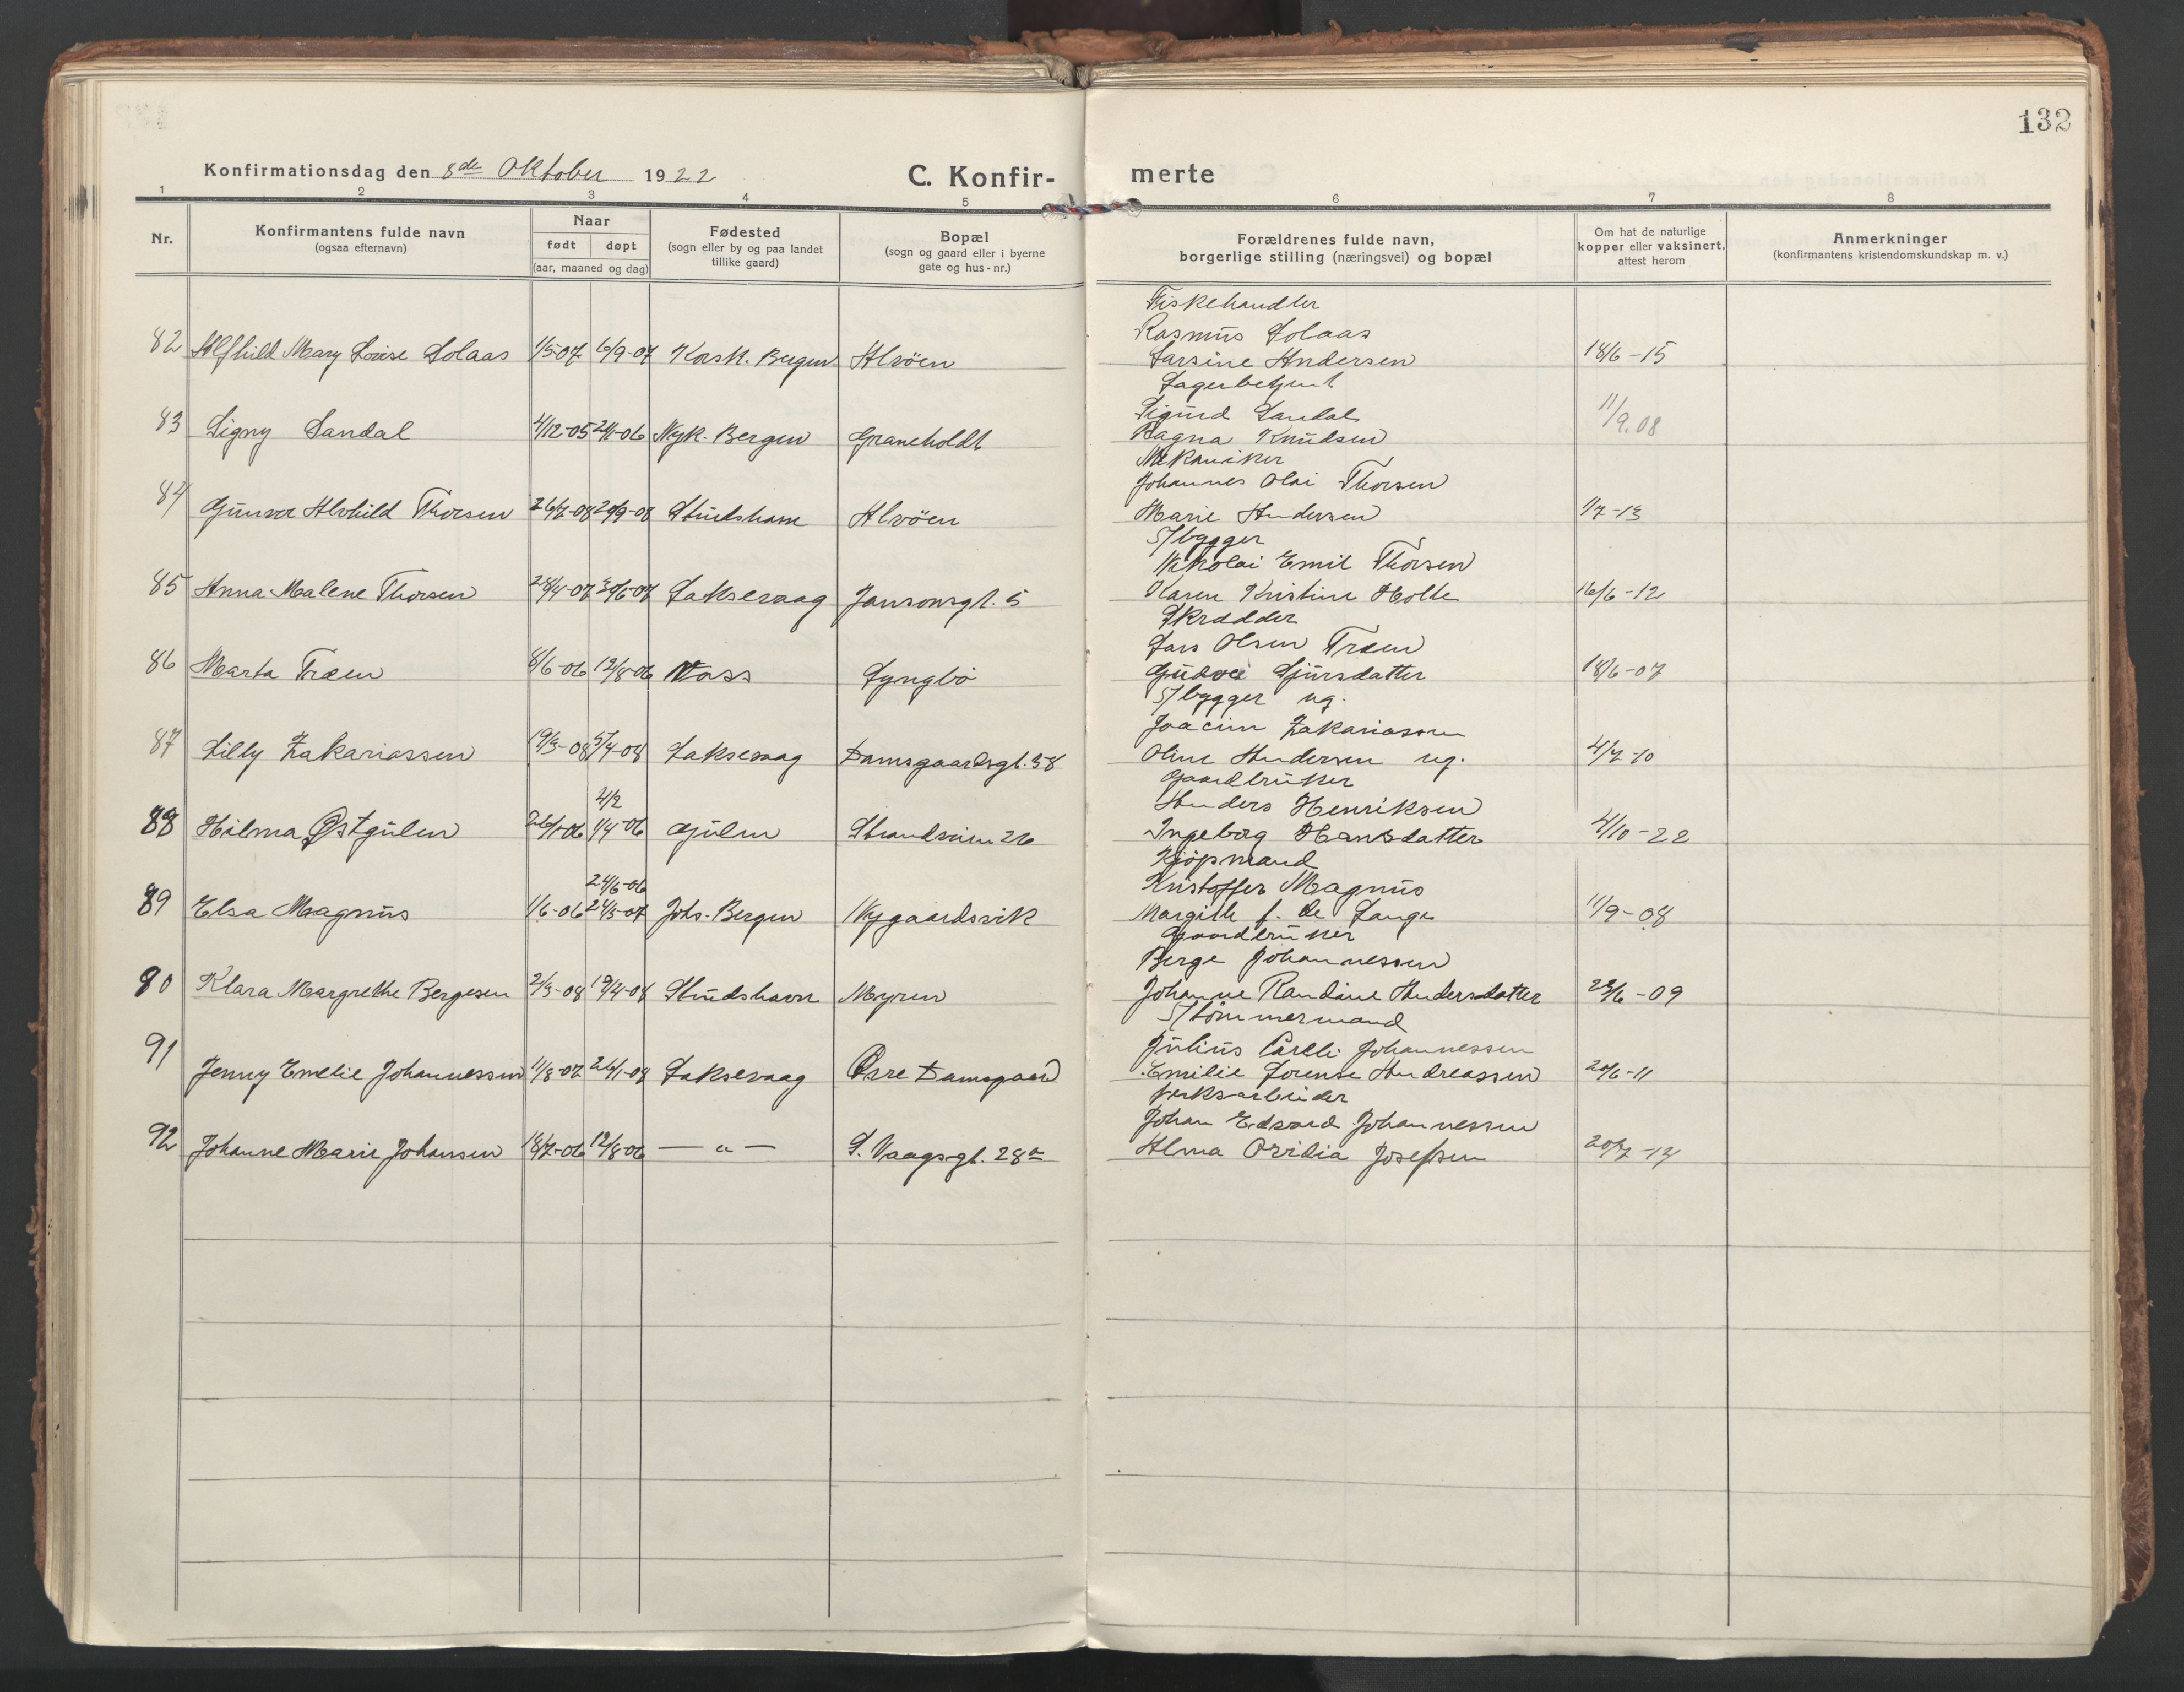 132
Konfirmationsdag den 8de Oktober 1922
C. Konfirmerte
1 2 3 4 5 6 7 8
Nr.
Konfirmantens fulde navn
(ogsaa efternavn)
Naar
født døpt
(aar, maaned og dag)
Fødested
(sogn eller by og paa landet
tillike gaard)
Bopæl
(sogn og gaard eller i byerne
gate og hus-nr.)
Forældrenes fulde navn,
borgerlige stilling (næringsvei) og bopæl
Om hat de naturlige
kopper eller vaksinert,
attest herom
Anmerkninger
(konfirmantens kristendomskundskap m. v.)
Fiskehandler
Rasmus Solaas
82 Alfhild Mary Lovise Solaas 1/5-07 6/9-07 Korsk. Bergen Alvöen Larsine Andersen 18/6-15
Lagerbetjent
Sigurd Sandal
83 Signy Sandal 4/12-05 Nyk. Bergen Graneholdt Ragna Knudsen 11/9.08
Mekaniker
Johannes Olai Thorsen
84 Gunvor Alvhild Thorsen 26/7-08 20/9-08 Studshavn Alvöen Marie Andersen 1/7-13
S/bygger
Nikolai Emil Thorsen
85 Anna Malene Thorsen 28/4-07 30/6-07 Laksevaag Jansonsgt. 5 Karen Kristine Holte 16/6-12
Skrædder
Lars Olsen Træen
86 Marta Træen 8/6-06 12/8-06 Voss Lyngbö Gudve Sjursdatter 18/6-07
S/bygger ug.
Joacim Zakariassen
87 Lilly Zakariassen 19/3-08 5/4-08 Laksevaag Damsgaardsgt. 38 Oline Andersen ug. 4/7-10
Gaardbruker
4/2
Anders Henriksen
88 Hilma Østgulen 26/1-06 1/4-06 Gulen Strandveien 26 Ingeborg Hansdatter 4/10-22
Kjöpmand
24/6-06
Kristoffer Magnus
89 Elsa Magnus 1/6-06 24/5-07 Johs. Bergen Nygaardsvik Margith f. de Lange 11/9-08
Gaardbruker
Berge Johannessen
90 Klara Margrethe Bergesen 2/3-08 19/4-08 Studshavn Myren Johanne Randine Andersdatter 28/6-09
S/tömmermand
Julius Careli Johannessen
91 Jenny Emelie Johannessen 11/8-07 26/1-08 Laksevaag Övre Damsgaard Emilie Lorense Andreassen 20/6-11
Verksarbeider
Johan Edvard Johannessen
92 Johanne Marie Johansen 18/7-06 12/8-06 — " — S. Vaagsgt. 28a Alma Ovidia Josefsen 20/7-14